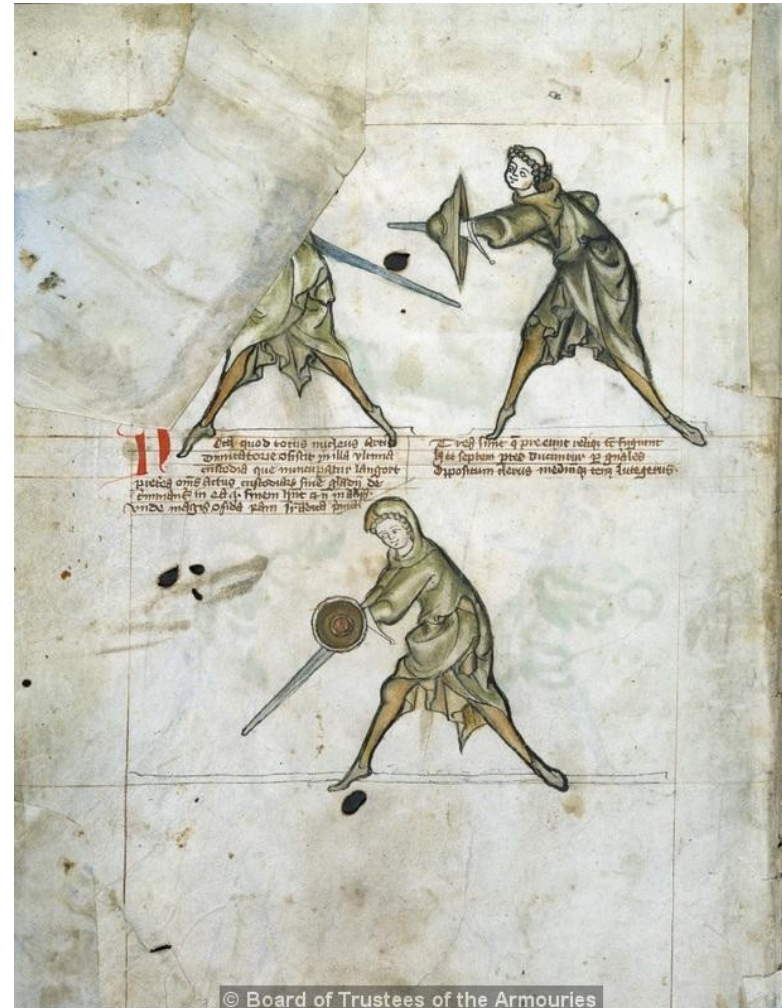 Nota quod totus nucleus artis
dimicatorie consistit in illa ultima
custodia que nuncupatur langort
preterea omnes actus custodiarum sive gladii de
terminant in ea .i. finem h̄nt ⁊ n̄ in aliis
vnde magis
Tres sunt q̄ preeunt reliq̄ tūc fugiunt
hec septem ptes ducuntur
Oppositum clerus mediusq̄ tenet lutegerus.
© Board of Trustees of the Armouries